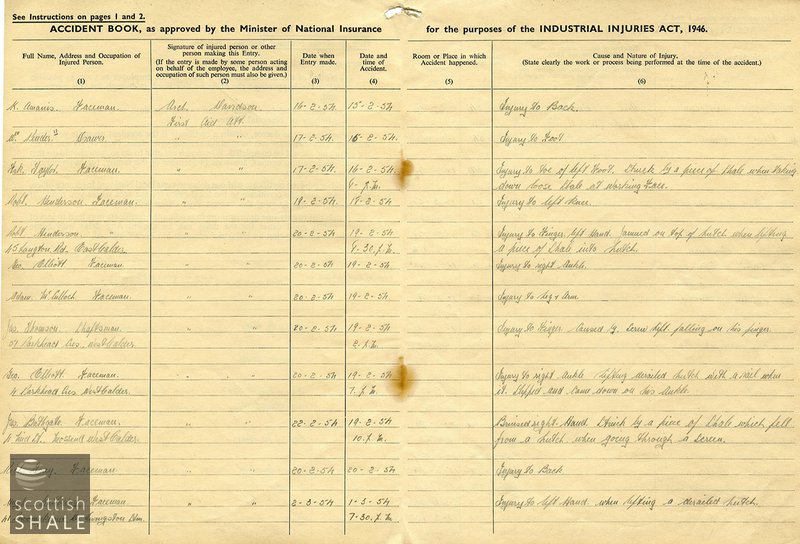 See Instructions on pages 1 and 2.
ACCIDENT BOOK, as approved by the Minister of National Insurance for the purposes of the INDUSTRIAL INJURIES ACT, 1946.
Full Name, Address and Occupation of Injured Person.
(1)
Signature of injured person or other person making this Entry.
(If the entry is made by some person acting on behalf of the employee, the address and occupation of such person must also be given.)
(2)
Date when Entry made.
(3)
Date and time of Accident.
(4)
Room or Place in which Accident happened.
(5)
Cause and Nature of Injury.
(State clearly the work or process being performed at the time of the accident.)
(6)
Faceman Arch. Davidson 16-2-54 15-2-54 Injury to Back.
First Aid Att.
Drawer " " 17-2-54 16-2-54 Injury to Foot
Taylor Faceman " " 17-2-54 16-2-54 Injury to toe of left Foot. Struck by a piece of Shale when taking
P.M. down loose Shale at working Face.
Robt Henderson Faceman " " 19-2-54 18-2-54 Injury to left Knee.
Robt Henderson " " " 20-2-54 19-2-54 Injury to Finger left Hand. Jammed on top of hutch when lifting
45 Langton Rd. East Calder 30 P.M. a piece of Shale into hutch.
Geo. Elliott Faceman " " 20-2-54 19-2-54 Injury to right Ankle.
Adam McCulloch Faceman " " 20-2-54 19-2-54 Injury to Leg & Arm
Jas. Thomson Shaftsman " " 20-2-54 19-2-54 Injury to Finger. Caused by Screw Lift falling on his finger.
Parkhead Cres. West Calder 2 P.M.
Geo. Elliott Faceman " " 20-2-54 19-2-54 Injury to right Ankle lifting derailed hutch with a rail when
4 Parkhead Cres West Calder. 7 P.M. it Slipped and came down on his Ankle.
Jas Bathgate Faceman " " 22-2-54 19-2-54 Bruised right Hand. Struck by a piece of Shale which fell
Mossend West Calder. 10 P.M. from a hutch when going through a Screen.
Faceman " " 20-2-54 20-2-54 Injury to Back.
Faceman " " 2-3-54 1-3-54 Injury to left Hand when lifting a derailed hutch.
Livingston Stn. 7-30 P.M.
scottish
SHALE